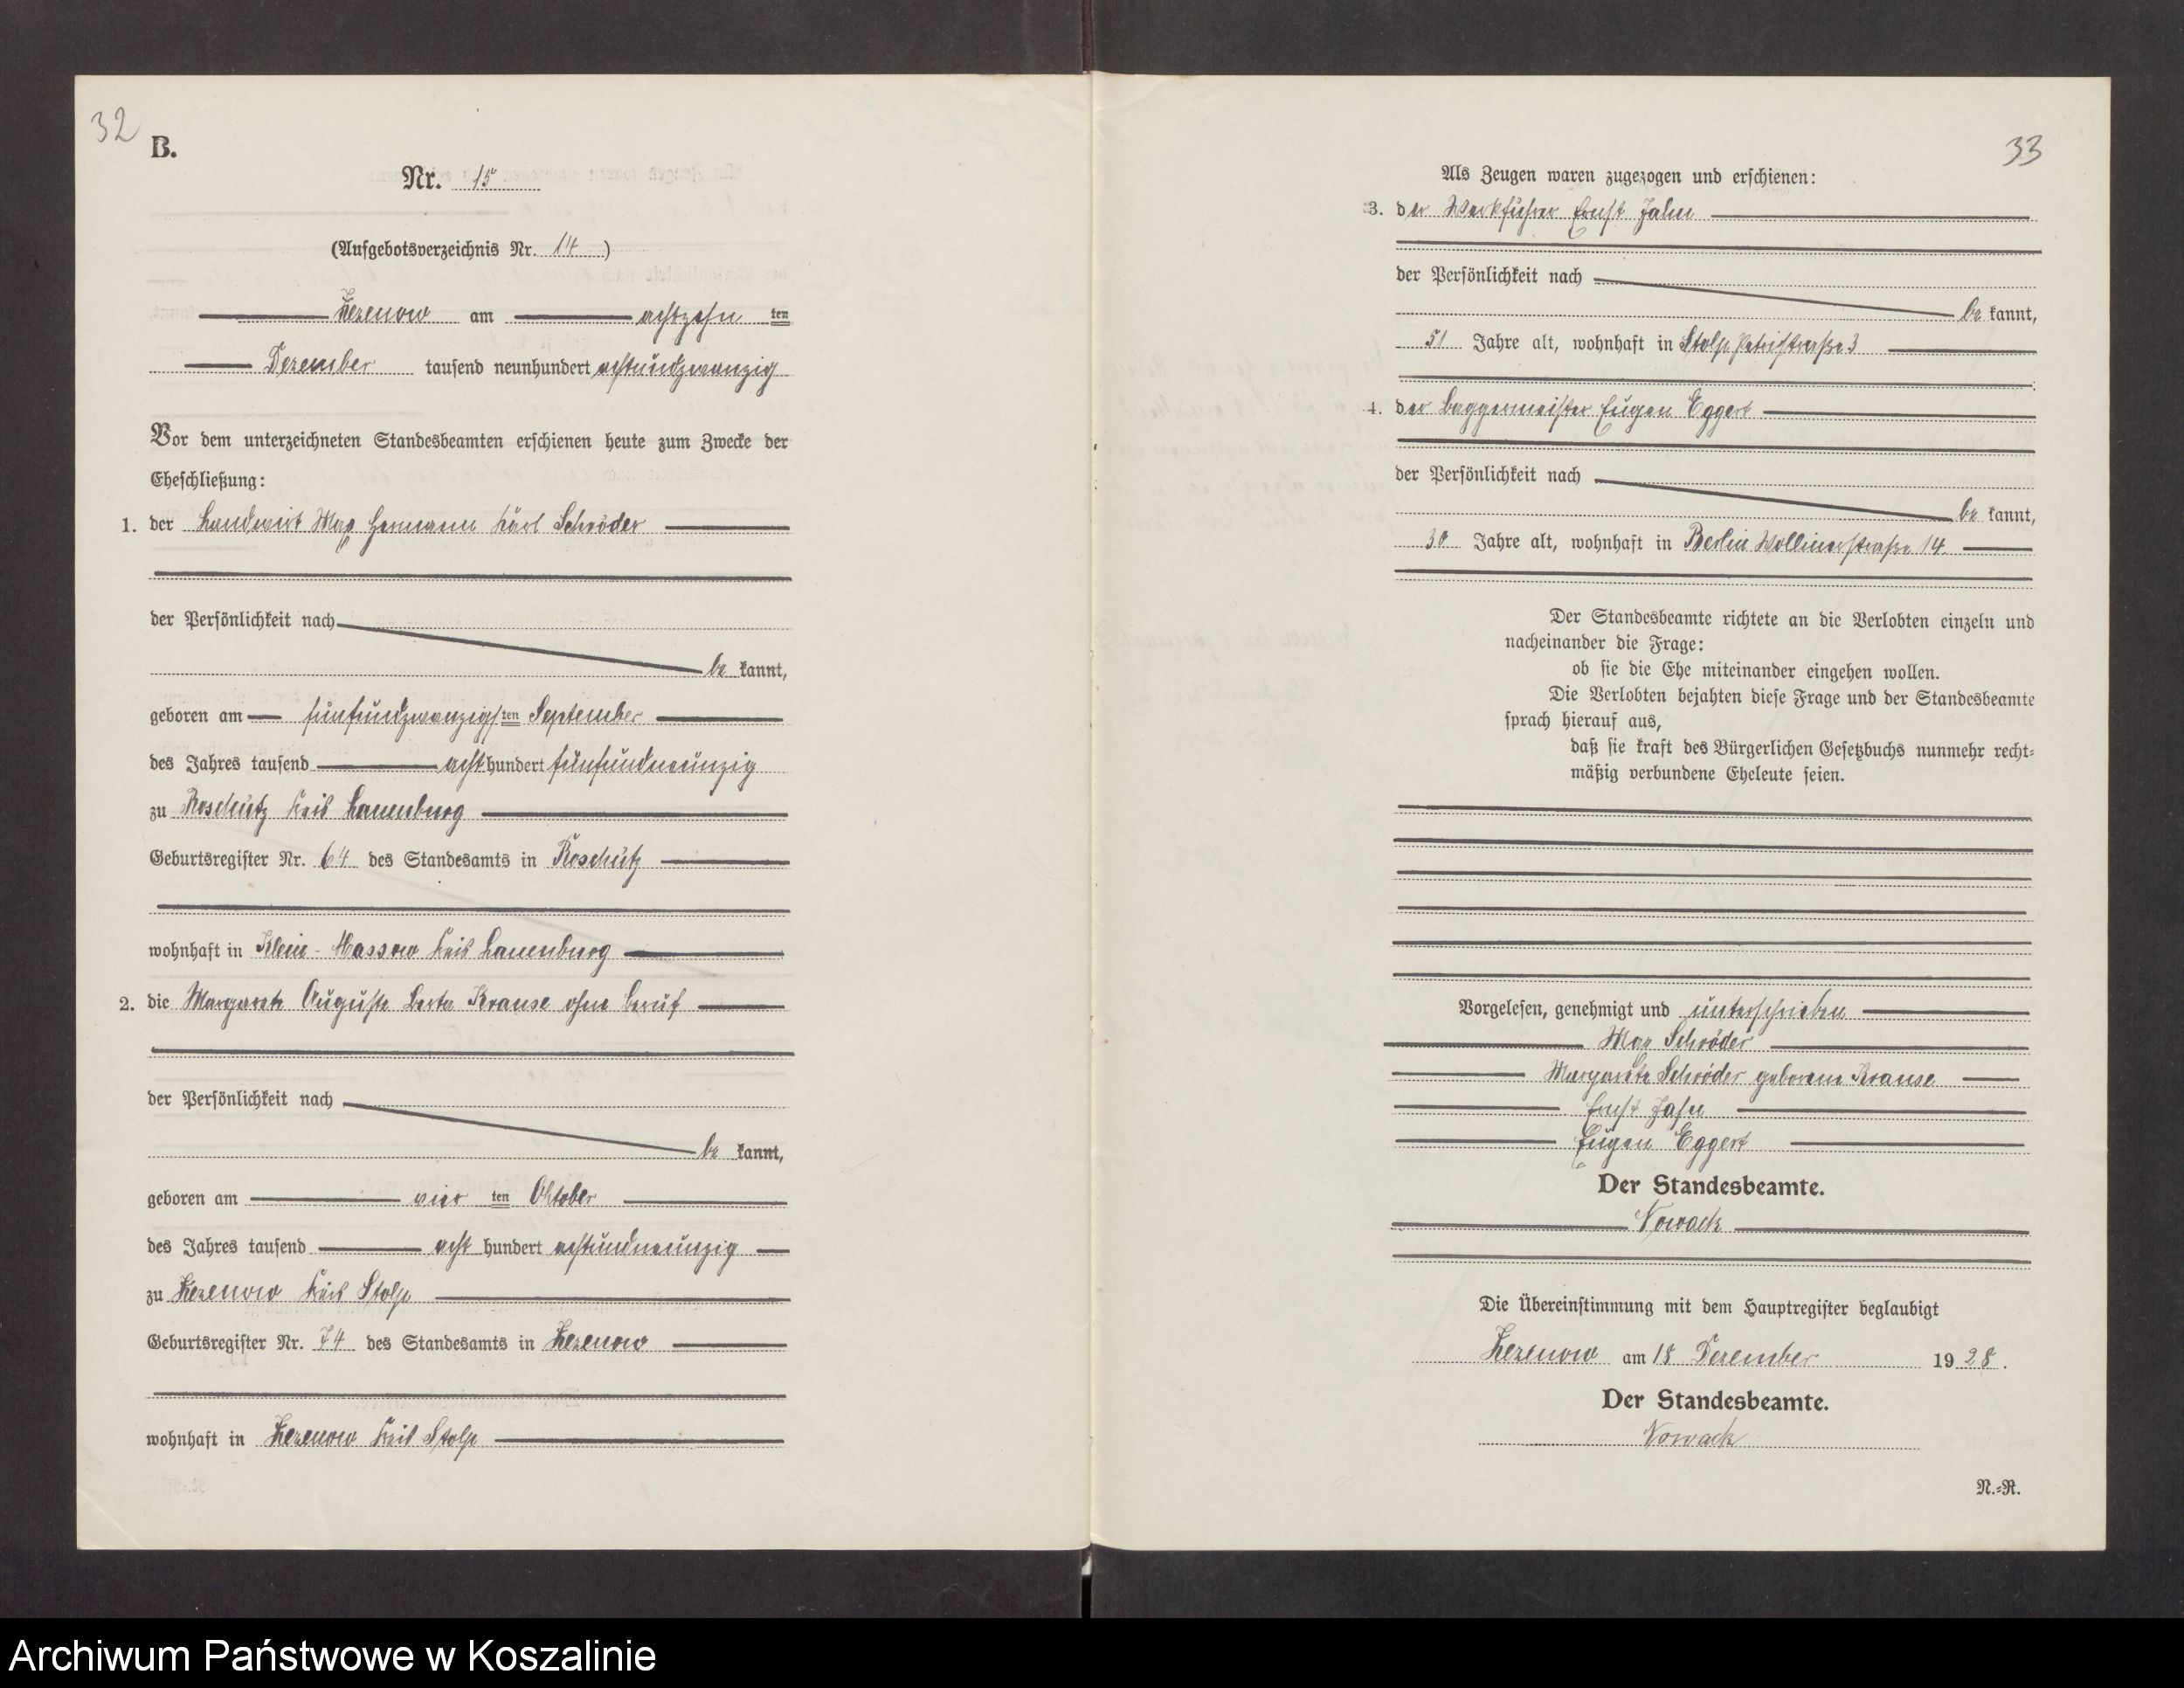 32
B.
Nr. 15
(Aufgebotsverzeichnis Nr. 14)
Zezenow am achtzehn ten
Dezember tausend neunhundert achtundzwanzig
Vor dem unterzeichneten Standesbeamten erschienen heute zum Zwecke der
Eheschließung:
1. der Landwirt Max Hermann Karl Schröder
der Persönlichkeit nach
be kannt,
geboren am fünfundzwanzigsten September
des Jahres tausend acht hundert fünfundneunzig
zu Roschütz Kreis Lauenburg
Geburtsregister Nr. 64 des Standesamts in Roschütz
wohnhaft in Klein-Massow Kreis Lauenburg
2. die Margarete Auguste Berta Krause ohne Beruf
der Persönlichkeit nach
be kannt,
geboren am vier ten Oktober
des Jahres tausend acht hundert achtundneunzig
zu Zezenow Kreis Stolp
Geburtsregister Nr. 74 des Standesamts in Zezenow
wohnhaft in Zezenow Kreis Stolp
33
Als Zeugen waren zugezogen und erschienen:
3. der Werkführer Ernst Jahn
der Persönlichkeit nach
be kannt,
51 Jahre alt, wohnhaft in Stolp Petristraße 3
4. der Baggermeister Eugen Eggert
der Persönlichkeit nach
be kannt,
30 Jahre alt, wohnhaft in Berlin Wollinerstraße 14
Der Standesbeamte richtete an die Verlobten einzeln und
nacheinander die Frage:
ob sie die Ehe miteinander eingehen wollen.
Die Verlobten bejahten diese Frage und der Standesbeamte
sprach hierauf aus,
daß sie kraft des Bürgerlichen Gesetzbuchs nunmehr recht-
mäßig verbundene Eheleute seien.
Vorgelesen, genehmigt und unterschrieben
Max Schröder
Margarete Schröder geborene Krause
Ernst Jahn
Eugen Eggert
Der Standesbeamte.
Nowack
Die Übereinstimmung mit dem Hauptregister beglaubigt
Zezenow am 18 Dezember 1928.
Der Standesbeamte.
Nowack
N.-R.
Archiwum Państwowe w Koszalinie